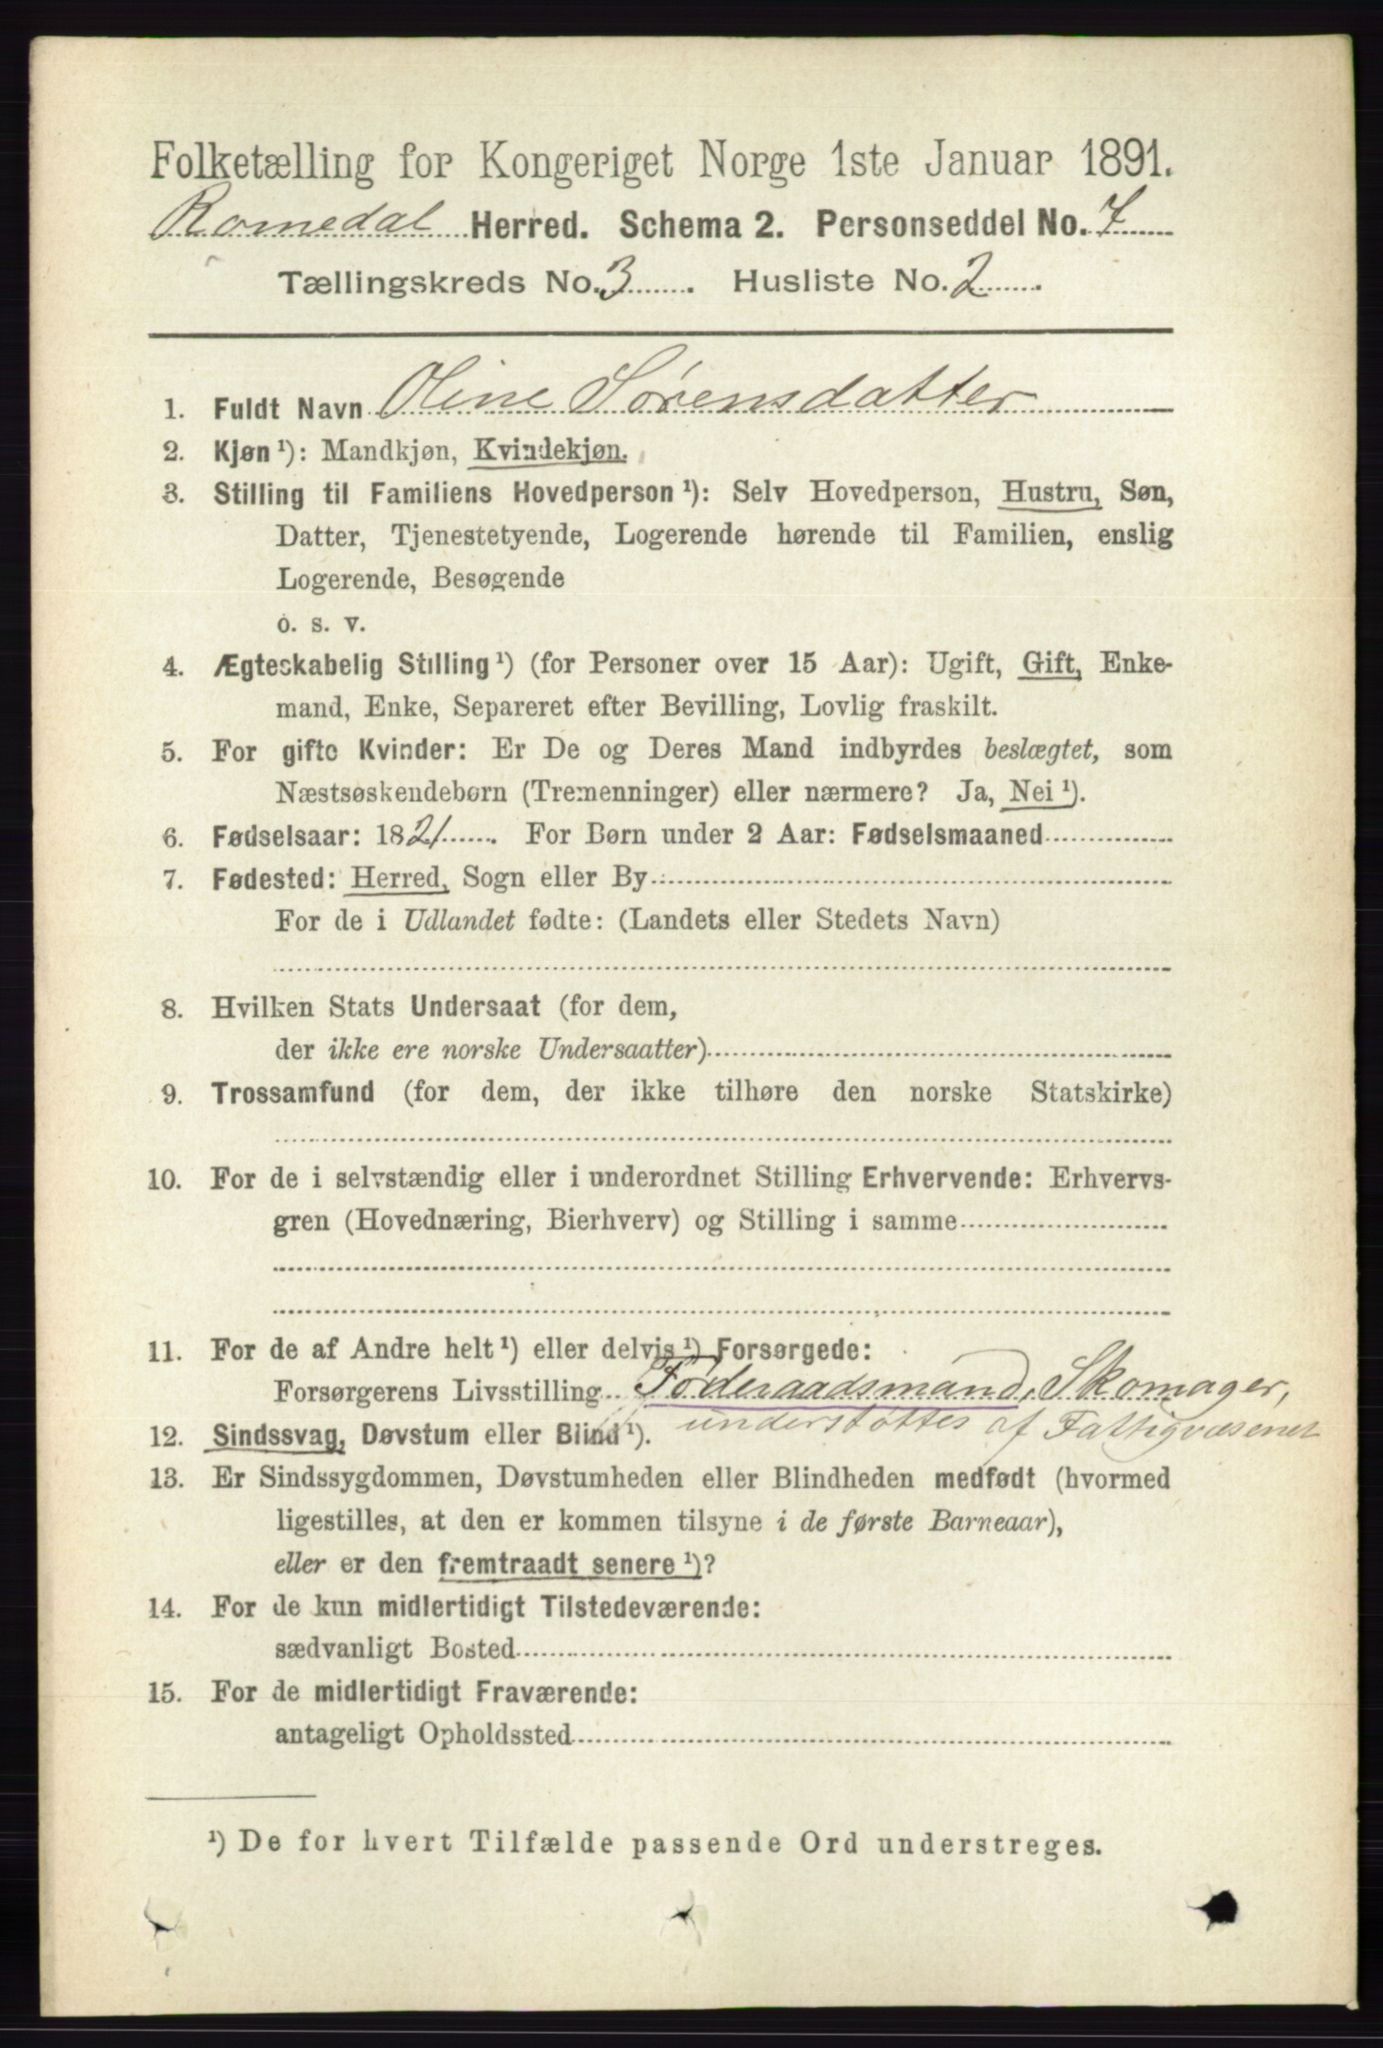 Folketælling for Kongeriget Norge 1ste Januar 1891.
Romedal Herred. Schema 2. Personseddel No. 7
Tællingskreds No. 3. Husliste No. 2.
1. Fuldt Navn Oline Sørensdatter
2. Kjøn ¹): Mandkjøn, Kvindekjøn.
3. Stilling til Familiens Hovedperson ¹): Selv Hovedperson, Hustru, Søn,
Datter, Tjenestetyende, Logerende hørende til Familien, enslig
Logerende, Besøgende
o. s. v.
4. Ægteskabelig Stilling ¹) (for Personer over 15 Aar): Ugift, Gift, Enke-
mand, Enke, Separeret efter Bevilling, Lovlig fraskilt.
5. For gifte Kvinder: Er De og Deres Mand indbyrdes beslægtet, som
Næstsøskendebørn (Tremenninger) eller nærmere? Ja, Nei ¹).
6. Fødselsaar: 1821. For Børn under 2 Aar: Fødselsmaaned
7. Fødested: Herred, Sogn eller By
For de i Udlandet fødte: (Landets eller Stedets Navn)
8. Hvilken Stats Undersaat (for dem,
der ikke ere norske Undersaatter)
9. Trossamfund (for dem, der ikke tilhøre den norske Statskirke)
10. For de i selvstændig eller i underordnet Stilling Erhvervende: Erhvervs-
gren (Hovednæring, Bierhverv) og Stilling i samme
11. For de af Andre helt ¹) eller delvis ¹) Forsørgede:
Forsørgerens Livsstilling Føderaadsmand, Skomager,
understøttes af Fattigvæsenet
12. Sindssvag, Døvstum eller Blind ¹).
13. Er Sindssygdommen, Døvstumheden eller Blindheden medfødt (hvormed
ligestilles, at den er kommen tilsyne i de første Barneaar),
eller er den fremtraadt senere ¹)?
14. For de kun midlertidigt Tilstedeværende:
sædvanligt Bosted
15. For de midlertidigt Fraværende:
antageligt Opholdssted
¹) De for hvert Tilfælde passende Ord understreges.